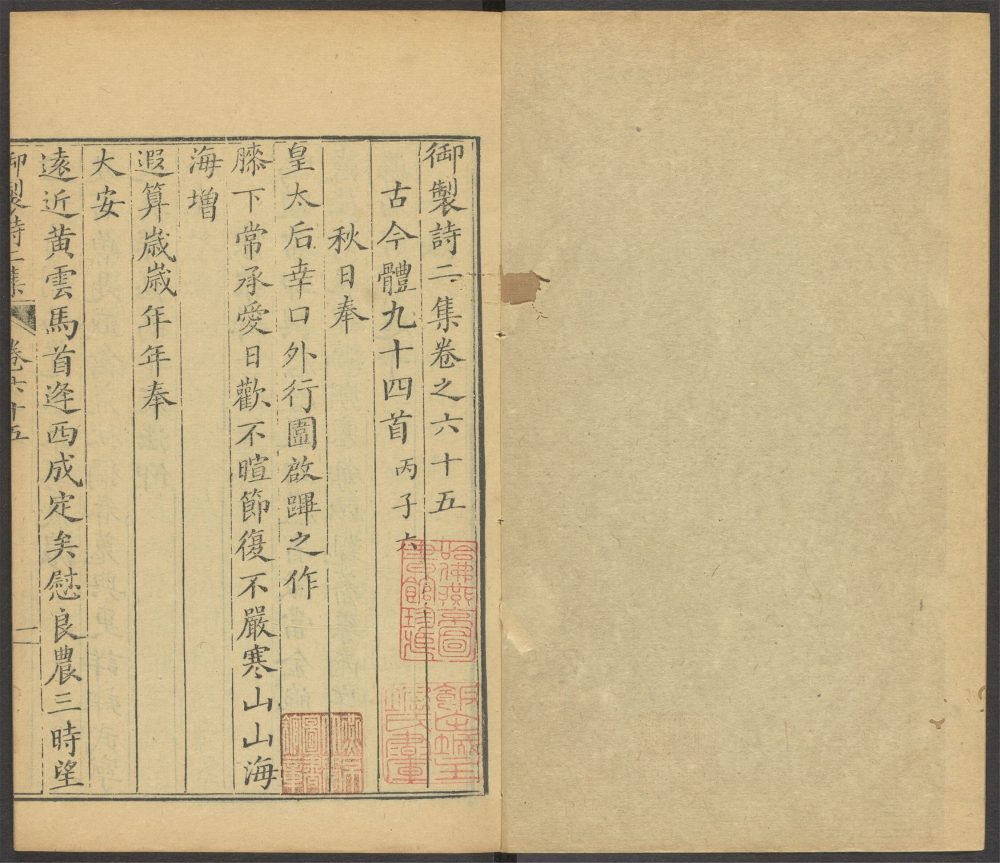 御製詩二集卷之六十五
古今體九十四首丙子六
秋日奉
皇太后幸口外行圍啟蹕之作
膝下常承愛日歡不暄節復不嚴寒山山海
海增
遐算歲歲年年奉
大安
遠近黃雲馬首逄西成定矣慰良農三時望
御製詩二集 卷六十五 一
哈佛燕京圖
書館珍藏